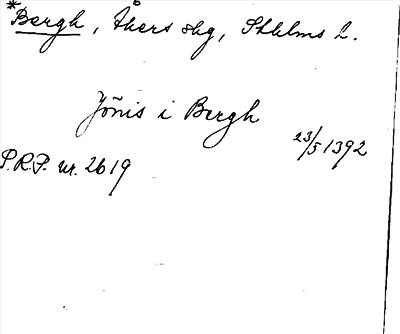 *Bergh, Åkers skg, Sthlms L.
Jönis i Bergh
23/5 1392
P.R.P. nr. 2619